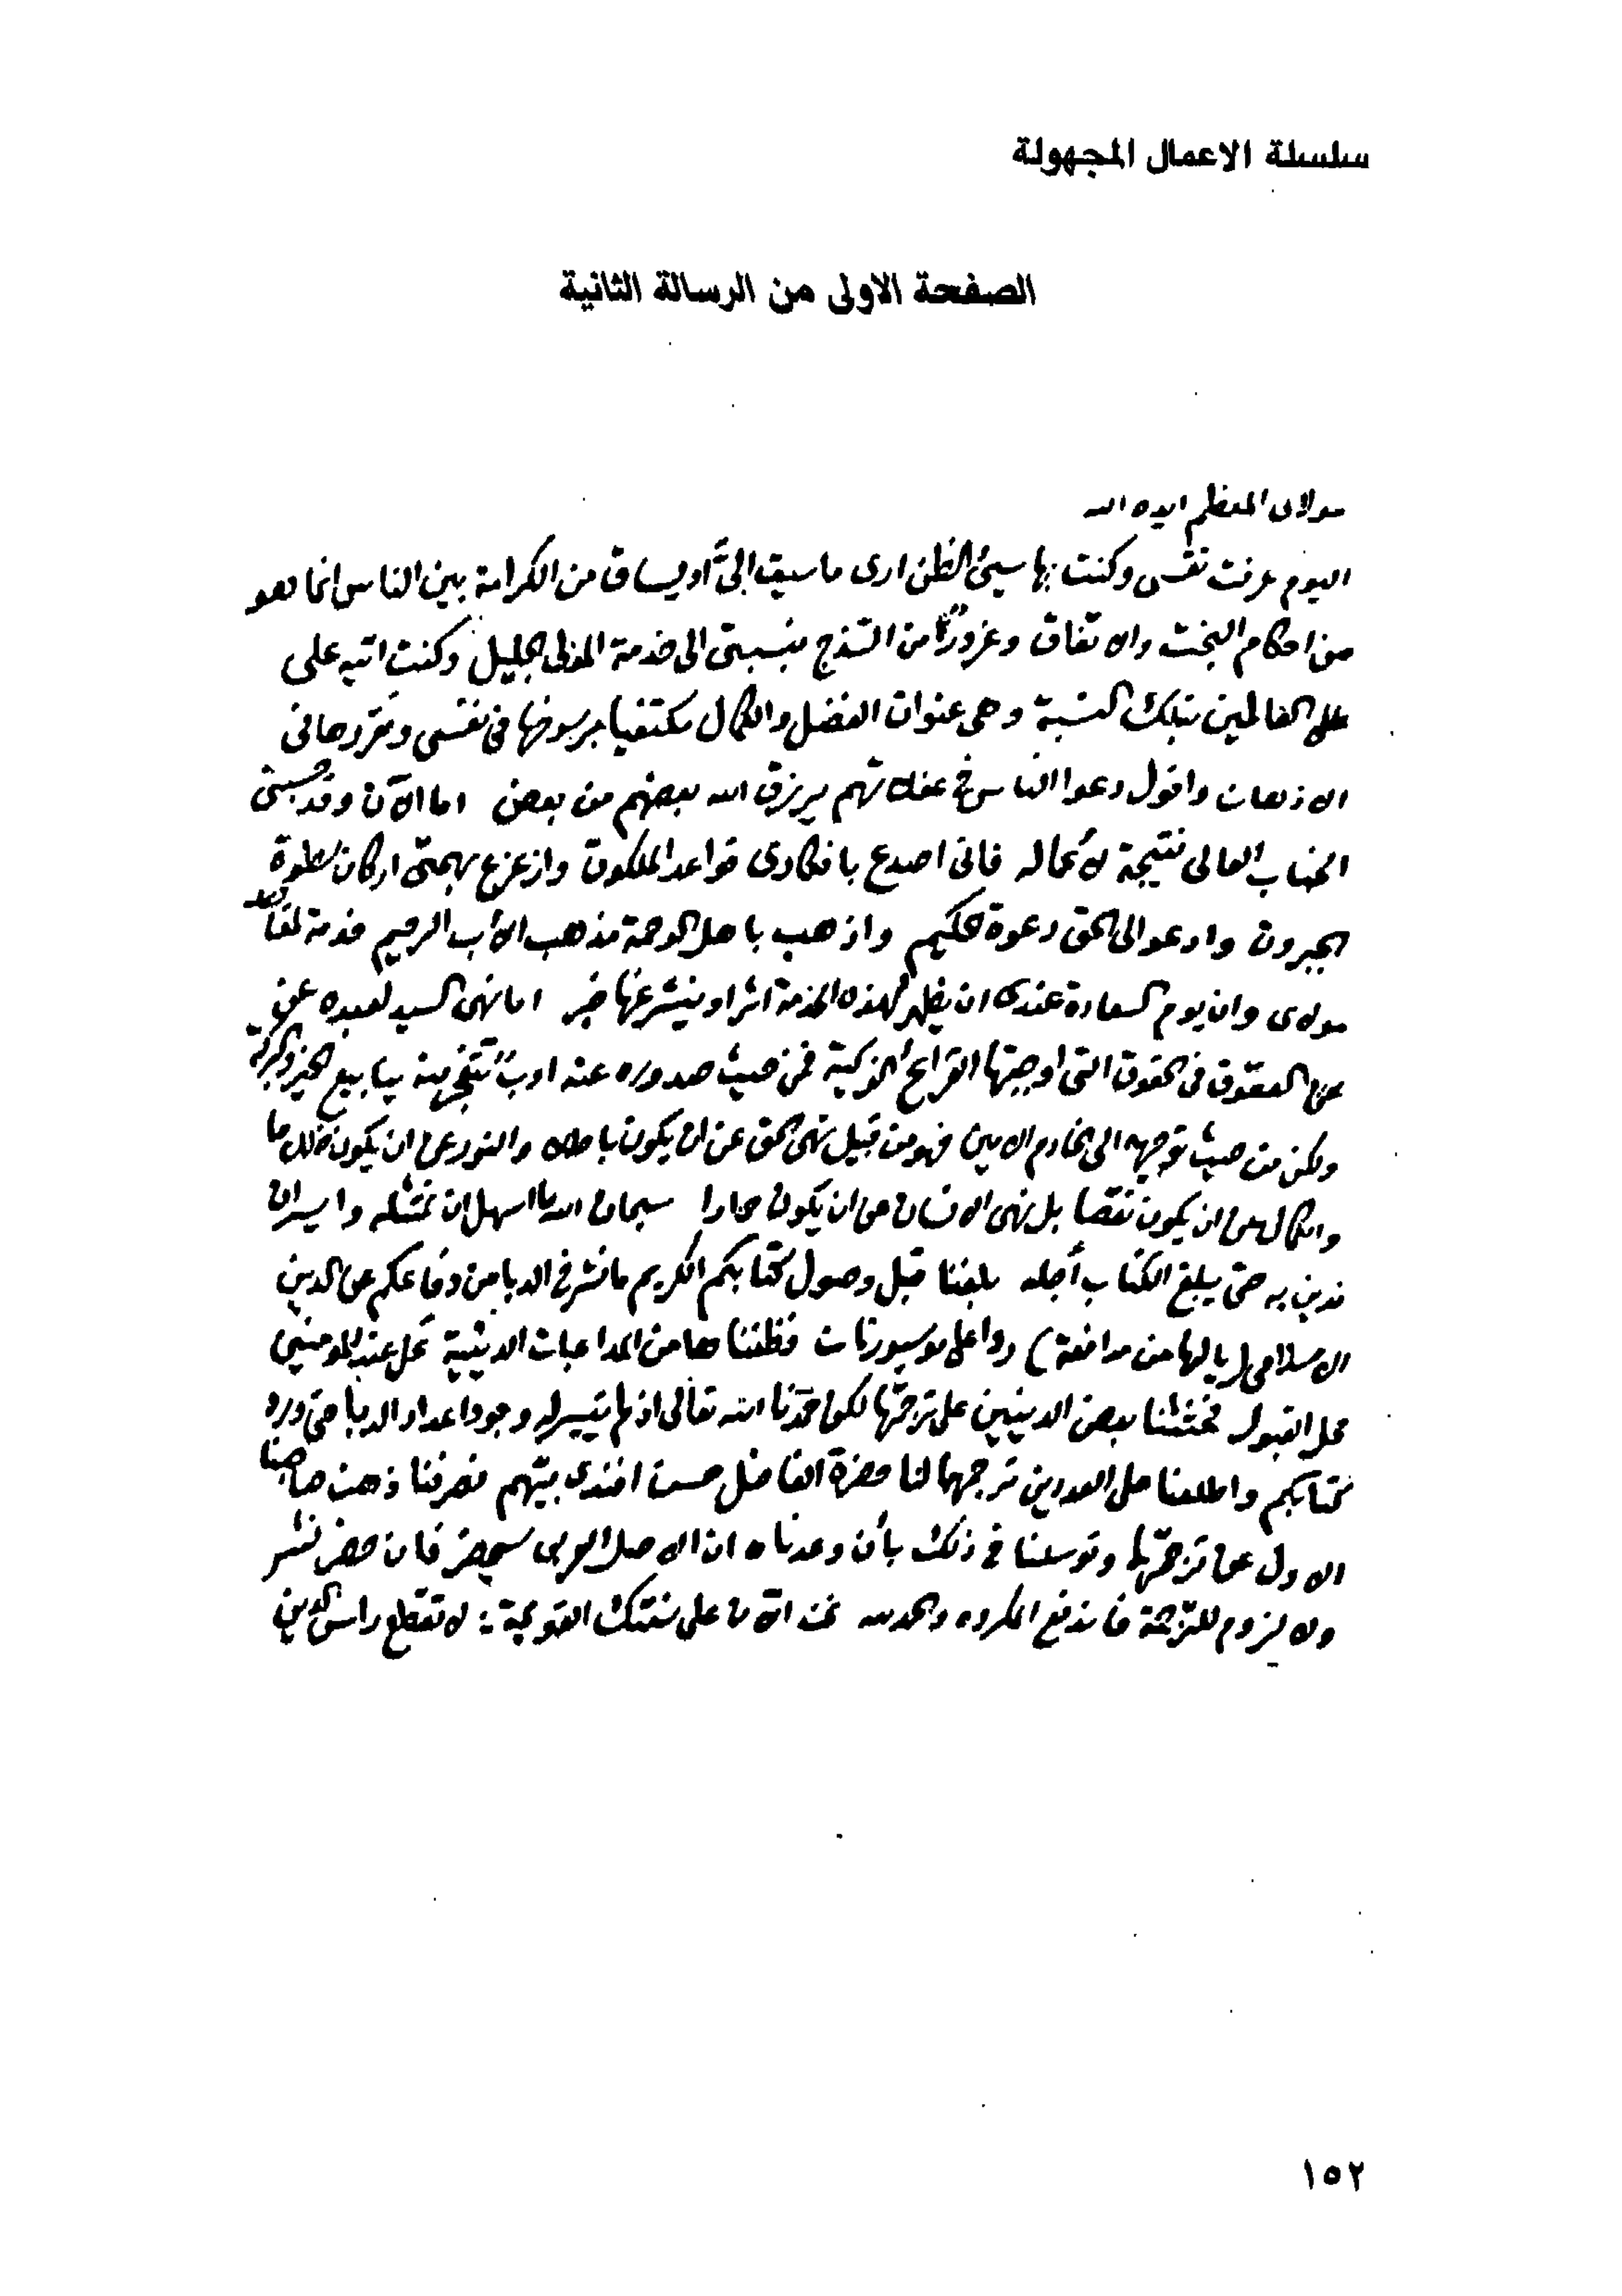 سلسلة الاعمال المجهولة
الصفحة الاولى من الرسالة الثانية
مولاى المعظم ايده الله
اليوم عرفت نفسى وكنت بها سيئ الظن ارى ما سيق الىّ او يساق من الكرامة بين الناس انما هو
من احكام البخت والاتفاق وغرورًا من السذج بنسبتى الى خدمة المولى الجليل وكنت اتيه على
على العالمين بتلك النسبة وهى عنوان الفضل والكمال مكتفيا برسوخها فى نفسى وتقررها فى
الاذهان واقول دعوا الناس فى غفلاتهم يرزق الله بعضهم من بعض اما الآن وقد حسبنى
الجناب العالى نتيجة لأعماله فانى اصدع بافكارى قواعد الملكوت وازعزع بهمتى اركان سطوة
الجبروت وادعو الى الحق دعوة حكيم واذهب باهل الرحمة مذهب الأب الرحيم خدمة لمقاصد
مولاى وان يوم السعادة عندى ان يظهر لهذه الخدمة اثر او ينشر عنها خبر اما نهى السيد لعبده عن
عن العقوق فى الحقوق التى اوجبتها القرائح الزكية فمن حيث صدوره عنه ادبٌ تتفجر منه ينابيع الخير والبركة
ولكن من حيث توجيهه الى الخادم الامين فهو من قبيل نهى الحق عن ان يكون باطلا والنور عن ان يكون ظلاما
والكمال عن ان يكون نقصا بل نهى الانسان عن ان يكون حمارا سبحان الله ما اسهل ان نمتثله وايسر ان
ندين به حتى يبلغ الكتاب أجله بلغنا قبل وصول كتابكم الكريم ما نشر فى الدبا من دفاعكم عن الدين
الاسلامى (يا لها من مدافعة) ردا على موسيو رنان فظنناها من المداعبات الدينية تحل عند المومنين
محل القبول فحثثنا بعض الدينيين على ترجمتها لكن حمدنا الله تعالى اذ لم يتيسر له وجود اعداد الدبا حتى ورد
كتابكم واطلعنا على العددين ترجمهما لنا حضرة الفاضل حسن افندى بيهم فصرفنا ذهن صاحبنا
الاول عن ترجمتها وتوسلنا فى ذلك بأن وعدناه ان الاصل العربى سيحضر فان حضر نشر
ولا لزوم للترجمة فاندفع المكروه والحمد لله نحن الآن على سنتك القويمة: لا تقطع راس الدين
١٥٢